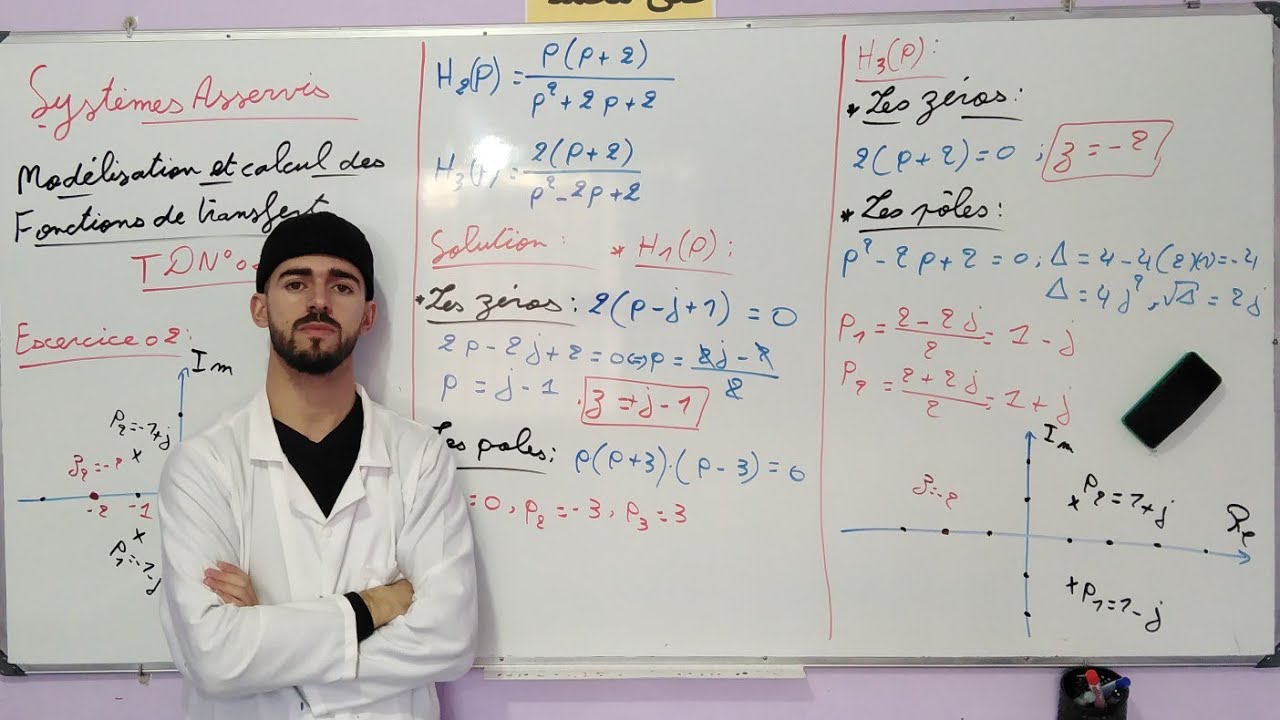 Systèmes Asservis
Modélisation et calcul des
Fonctions de transfert
TDN°0
Excercice 02:
Im
P₂=-1+j
z₂=-2
-2
-1
P₁=-1-j
H₂(P) = P(P+2) / P²+2P+2
H₃( ) = 2(P+2) / P²-2P+2
Solution: * H₁(P):
* Les zéros: 2(P-j+1) = 0
2P-2j+2=0⇔P= 2j-2 / 2
P = j-1 . z = j-1
Les poles: P(P+3).(P-3)=0
=0, P₂=-3, P₃=3
H₃(P):
* Les zéros:
2(P+2)=0 ; z=-2
* Les pôles:
P²-2P+2=0; Δ=4-4(2)(1)=-4
Δ=4j², √Δ=2j
P₁ = 2-2j / 2 = 1-j
P₂ = 2+2j / 2 = 1+j
Im
z=-2
P₂=1+j
Re
P₁=1-j